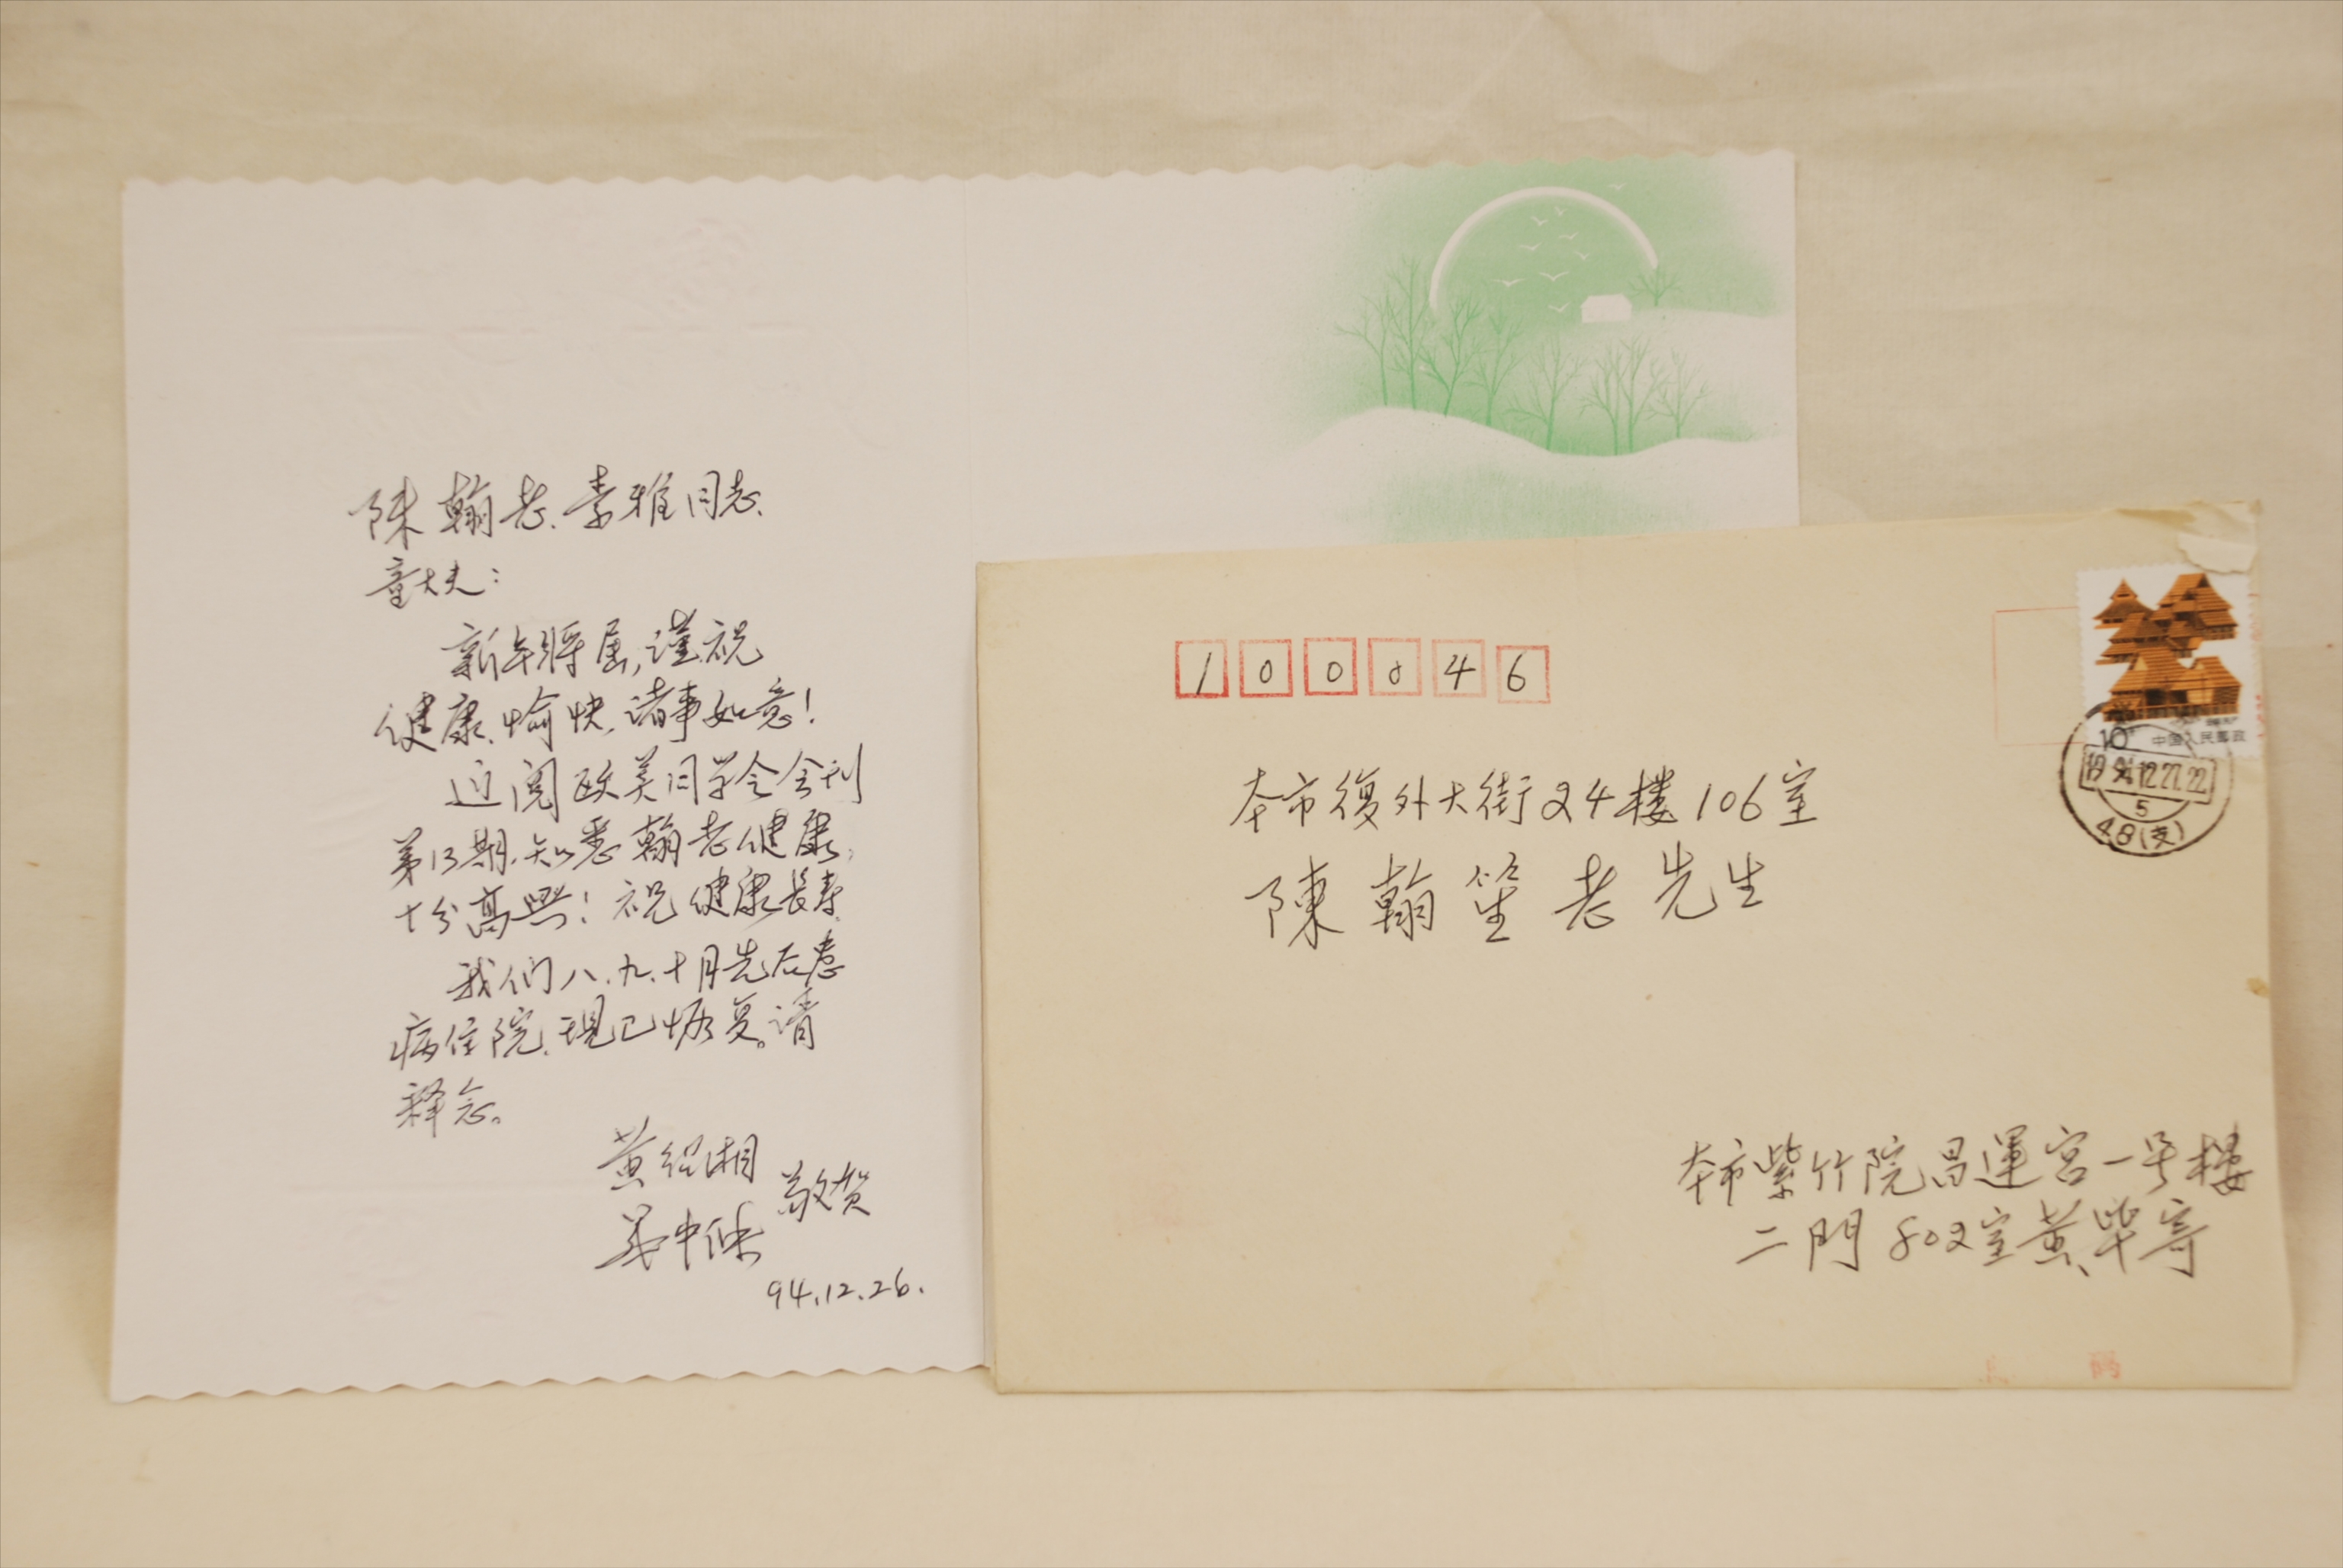 陳翰老、素雅同志、
童大夫：
新年將屆，謹祝
健康、愉快，諸事如意！
近閱欧美同学会会刊
第13期，知悉翰老健康，
十分高興！祝健康長寿。
我们八、九、十月先后患
病住院，現已恢复。请
释念。
黄绍湘
毕中杰
敬贺
94.12.26.
100046
本市復外大街24楼106室
陳翰笙老先生
本市紫竹院昌運宫一号楼
二門802室黄、毕寄
10
中国人民邮政
1994.12.27.22
5
48(支)